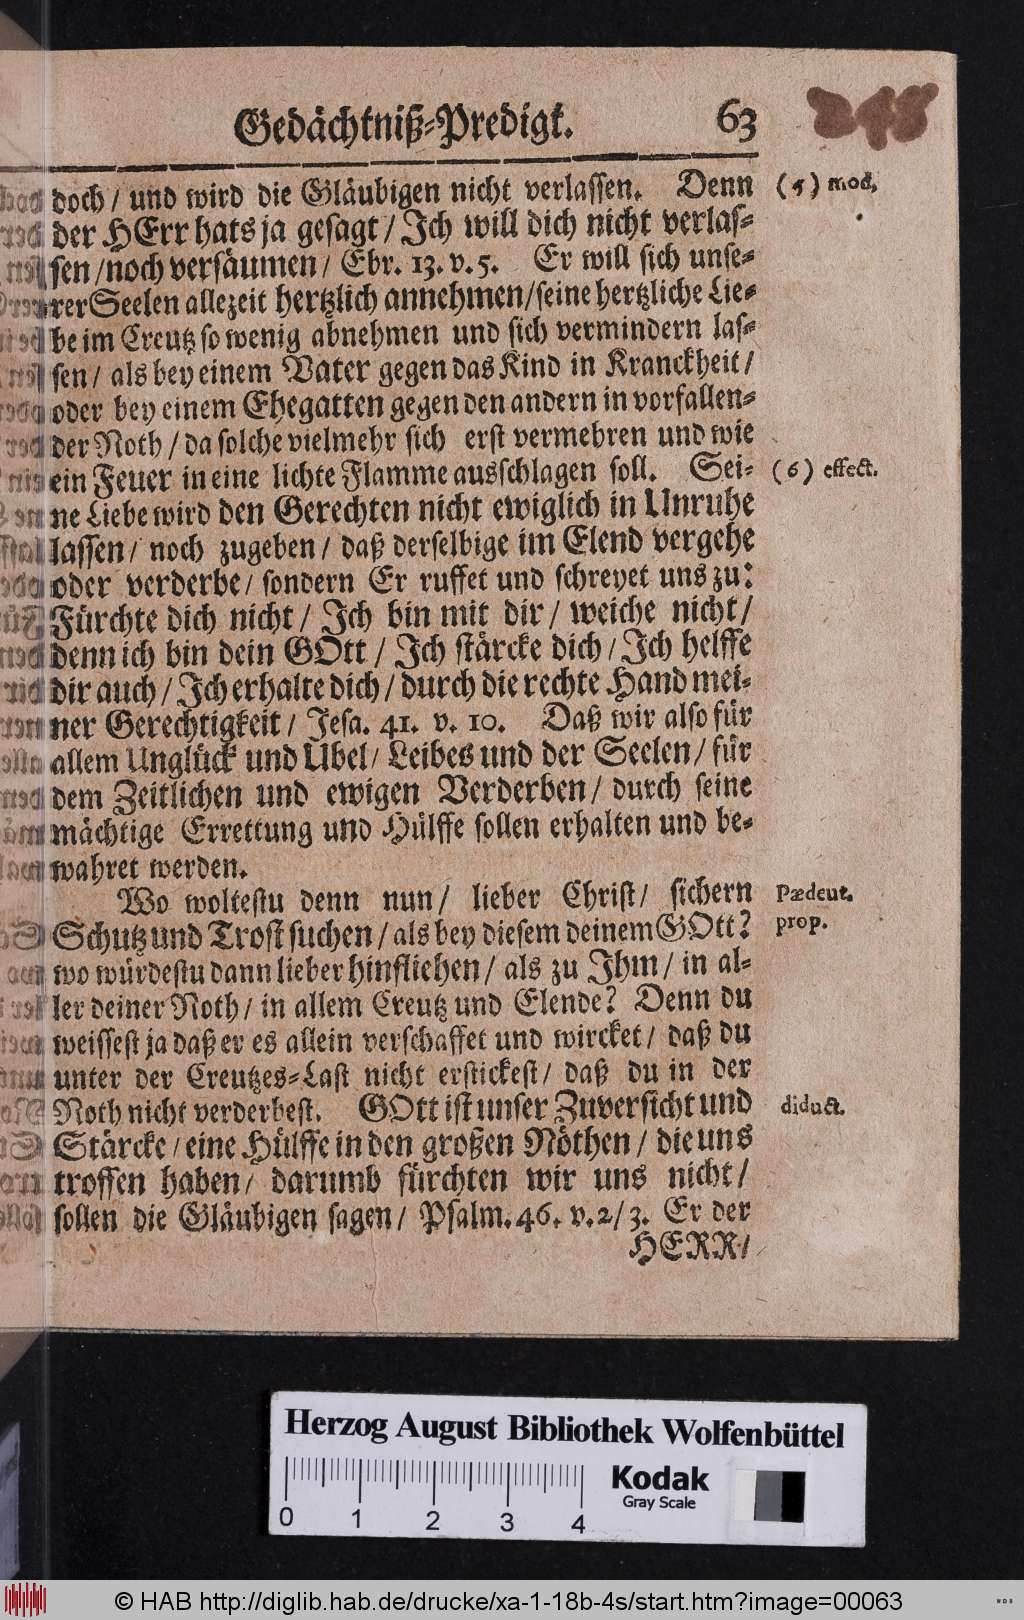 Gedächtniß-Predigt. 63
doch / und wird die Gläubigen nicht verlassen. Denn (5) mod.
der HErr hats ja gesagt / Ich will dich nicht verlas-
sen / noch versäumen / Ebr. 13. v. 5. Er will sich unse-
rer Seelen allezeit hertzlich annehmen / seine hertzliche Lie-
be im Creutz so wenig abnehmen und sich vermindern las-
sen / als bey einem Vater gegen das Kind in Kranckheit /
oder bey einem Ehegatten gegen den andern in vorfallen-
der Noth / da solche vielmehr sich erst vermehren und wie
ein Feuer in eine lichte Flamme ausschlagen soll. Sei- (6) effect.
ne Liebe wird den Gerechten nicht ewiglich in Unruhe
lassen / noch zugeben / daß derselbige im Elend vergehe
oder verderbe / sondern Er ruffet und schreyet uns zu:
Fürchte dich nicht / Ich bin mit dir / weiche nicht /
denn ich bin dein GOtt / Ich stärcke dich / Ich helffe
dir auch / Ich erhalte dich / durch die rechte Hand mei-
ner Gerechtigkeit / Jesa. 41. v. 10. Daß wir also für
allem Unglück und Ubel / Leibes und der Seelen / für
dem Zeitlichen und ewigen Verderben / durch seine
mächtige Errettung und Hülffe sollen erhalten und be-
wahret werden.
Wo woltestu denn nun / lieber Christ / sichern Pædeut.
Schutz und Trost suchen / als bey diesem deinem GOtt? prop.
wo würdestu dann lieber hinfliehen / als zu Ihm / in al-
ler deiner Noth / in allem Creutz und Elende? Denn du
weissest ja daß er es allein verschaffet und wircket / daß du
unter der Creutzes-Last nicht erstickest / daß du in der
Noth nicht verderbest. GOtt ist unser Zuversicht und diduct.
Stärcke / eine Hülffe in den großen Nöthen / die uns
troffen haben / darumb fürchten wir uns nicht /
sollen die Gläubigen sagen / Psalm. 46. v. 2 / 3. Er der
HERR /
Herzog August Bibliothek Wolfenbüttel
Kodak
Gray Scale
0 1 2 3 4
© HAB http://diglib.hab.de/drucke/xa-1-18b-4s/start.htm?image=00063